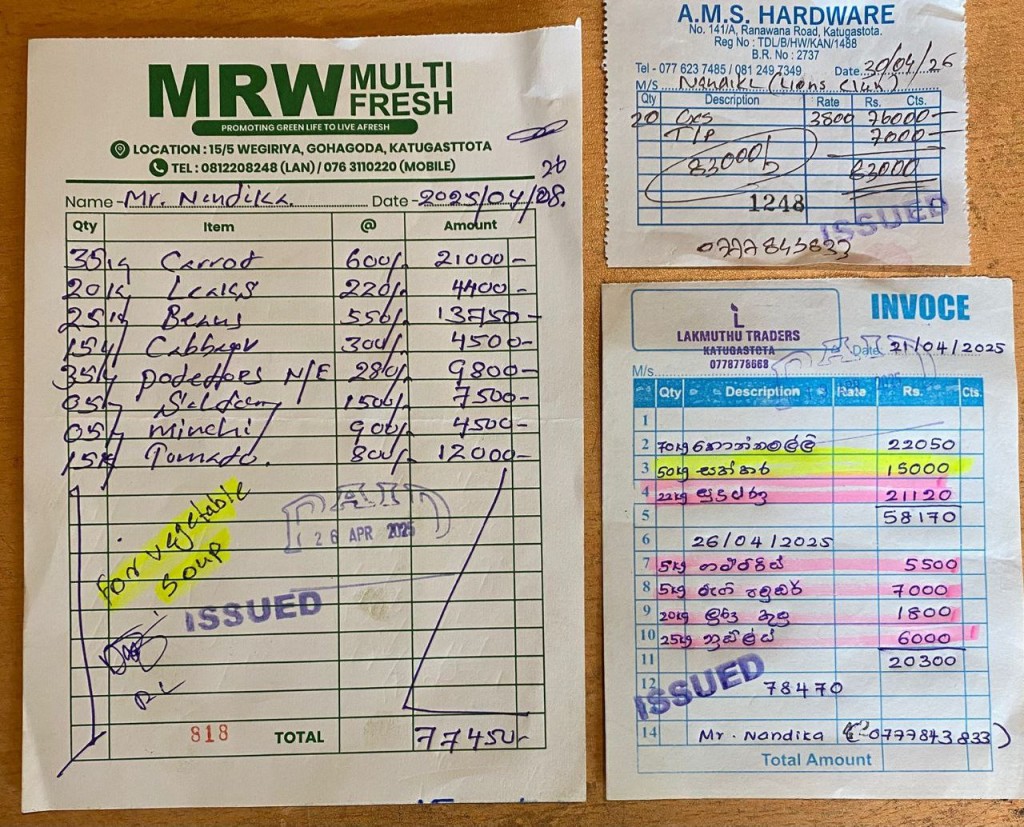 MRW MULTI FRESH
PROMOTING GREEN LIFE TO LIVE AFRESH
LOCATION : 15/5 WEGIRIYA, GOHAGODA, KATUGASTTOTA
TEL : 0812208248 (LAN) / 076 3110220 (MOBILE)
26
Name - Mr. Nandika. Date - 2025/04/08.
Qty Item @ Amount
35kg Carrot 600/. 21000-
20kg Leaks 220/. 4400-
25kg Beans 550/. 13750-
15kg Cabbage 300/. 4500-
35kg N/E 280/. 9800-
05kg 1500/. 7500-
05kg Minchi 900/. 4500-
15kg Tomado. 800/. 12000-
For vegetable
Soup
PAID
26 APR 2025
ISSUED
818 TOTAL 77450-
A.M.S. HARDWARE
No. 141/A, Ranawana Road, Katugastota.
Reg No : TDL/B/HW/KAN/1488
B.R. No : 2737
Tel - 077 623 7485 / 081 249 7349 Date 30/04/26
M/s Nandika (Lions Club)
Qty Description Rate Rs. Cts.
20 3800 76000-
T/P 7000-
83000/ 83000
1248
ISSUED
0777843833
INVOCE
LAKMUTHU TRADERS
KATUGASTOTA
0778778668
Date 21/04/2025
M/s
Qty Description Rate Rs. Cts.
1
2 70kg කොත්තමල්ලි 22050
3 50kg 15000
4 22kg සුදුළූණු 21120
5 58170
6 26/04/2025
7 5kg 5500
8 5kg 7000
9 20kg ලුණු කුඩු 1800
10 25kg 6000
11 20300
12 78470
ISSUED
14 Mr. Nandika (0777843833)
Total Amount